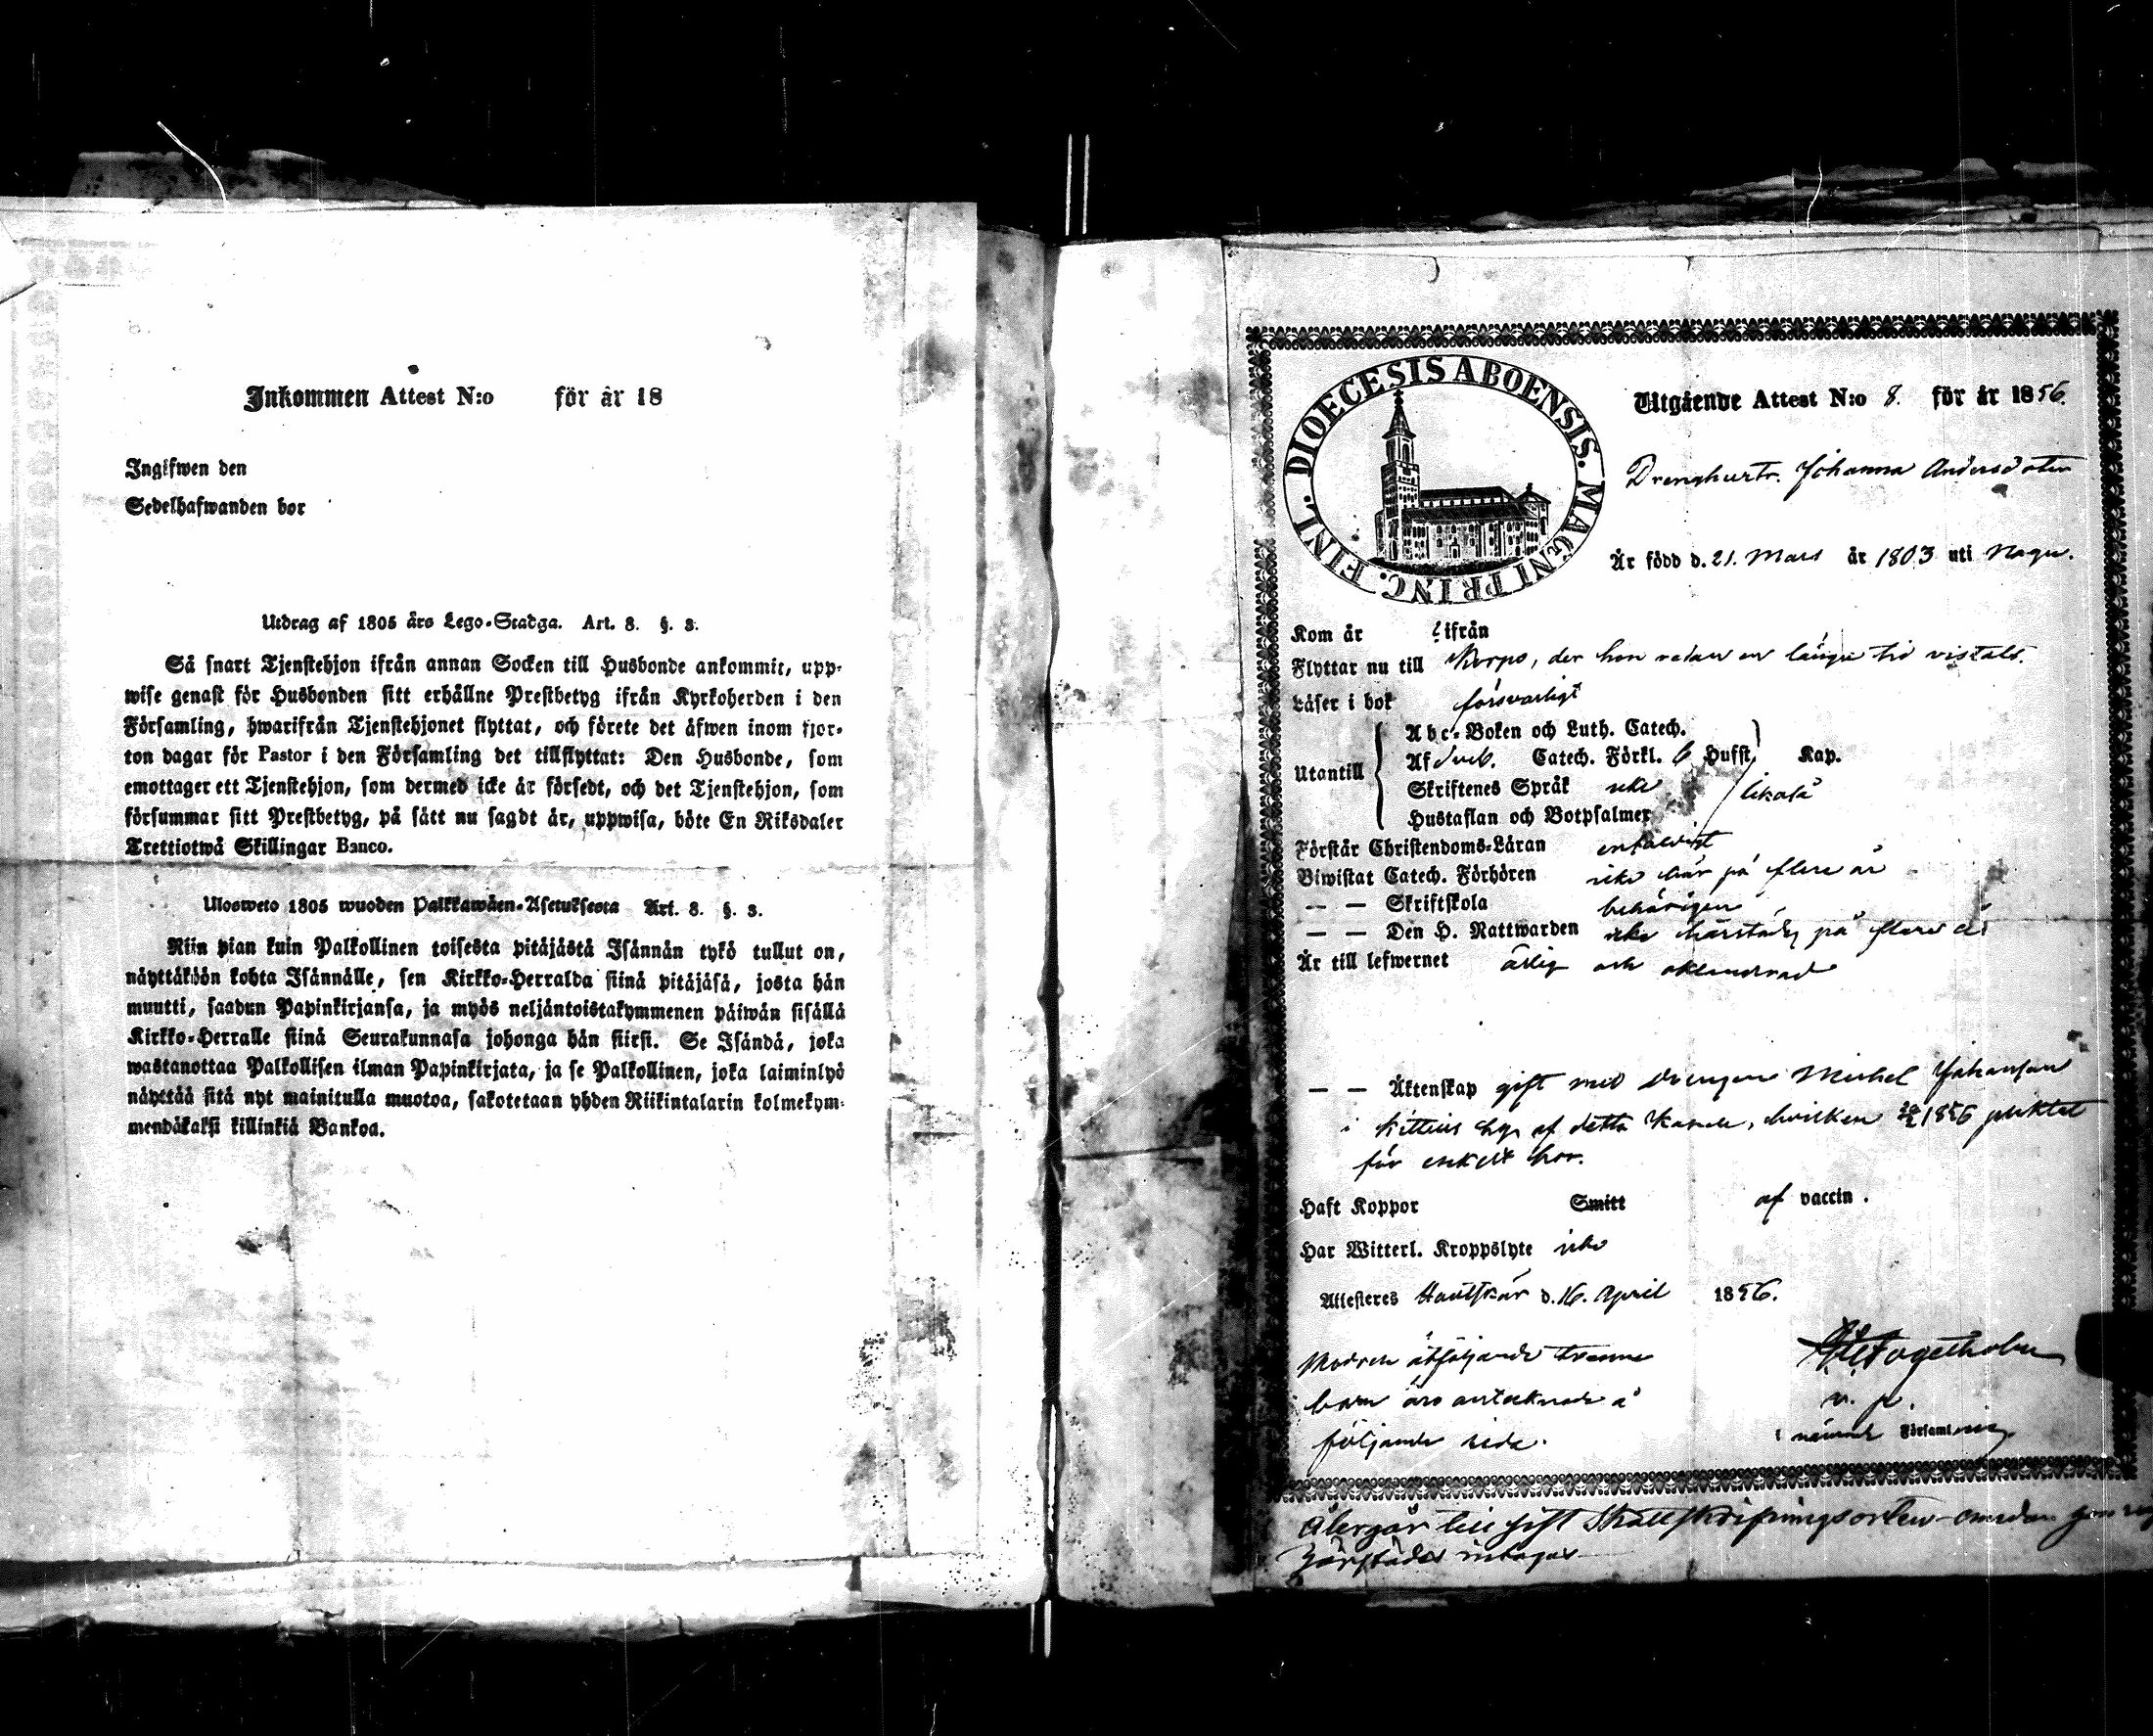 Inkommen Attest N:o för år 18
Ingifwen den
Sedelhafwanden bor
Utdrag af 1805 års Lego-Stadga. Art. 8. §. 3.
Så snart Tjenstehjon ifrån annan Socken till Husbonde ankommit, upp-
wise genast för Husbonden sitt erhållne Prestbetyg ifrån Kyrkoherden i den
Församling, hwarifrån Tjenstehjonet flyttat, och förete det åfwen inom fjor-
ton dagar för Pastor i den Församling det tillflyttat: Den Husbonde, som
emottager ett Tjenstehjon, som dermed icke är försedt, och det Tjenstehjon, som
försummar sitt Prestbetyg, på sätt nu sagdt är, uppwisa, böte En Riksdaler
Trettiotwå Skillingar Banco.
Ulosweto 1805 wuoden Palkkawäen-Asetuksesta Art. 8. §. 3.
Niin pian kuin Palkollinen toisesta pitäjästä Isännän tykö tullut on,
näyttäköön kohta Isännälle, sen Kirkko-Herralda siinä pitäjäsä, josta hän
muutti, saadun Papinkirjansa, ja myös neljäntoistakymmenen päiwän sisällä
Kirkko-Herralle siinä Seurakunnasa johonga hän siirsi. Se Isändä, joka
wastanottaa Palkollisen ilman Papinkirjata, ja se Palkollinen, joka laiminlyö
näyttää sitä nyt mainitulla muotoa, sakotetaan yhden Riikintalarin kolmekym-
mendäkaksi killinkiä Bankoa.
DIOECESIS ABOENSIS. MAGNI PRINC. FINL.
Utgående Attest N:o 8. för år 1856.
Drenghustr. Johanna Andersdoter
Är född d. 21. Mars år 1803 uti Nagu.
Kom år ifrån
Flyttar nu till Korpo, der hon redan en längre tid vistats.
Läser i bok försvarligt
Abc-Boken och Luth. Catech.
Utantill Af Sveb. Catech. Förkl. 6 Hufst. Kap.
Skriftenes Språk icke likaså
Hustaflan och Botpsalmer
Förstår Christendoms-Läran enfaldigt
Biwistat Catech. Förhören icke här på flere år
— — Skriftskola behörigen
— — Den H. Nattwarden icke härstädes på flere år
Är till lefwernet ärlig och oklandrad
— — Äktenskap gift med drengen Michel Johansson
i Kittuis by af detta Kapell, hvilken 1856 pliktat
för enkelt hor.
Haft Koppor Smitt af vaccin.
Har Witterl. Kroppslyte icke
Attesteras Houtskär d. 16. April 1856.
Modren åtföljande trenne
barn äro antecknade å
följande sida.
v. p.
i nämnde Församling
Återgår till sist Skattskrifningsorten emedan
härstädes intagas